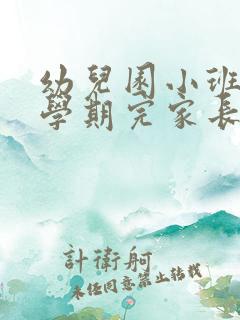 幼兒園小班
學期完家長
計衛舸
未经同意禁止转载